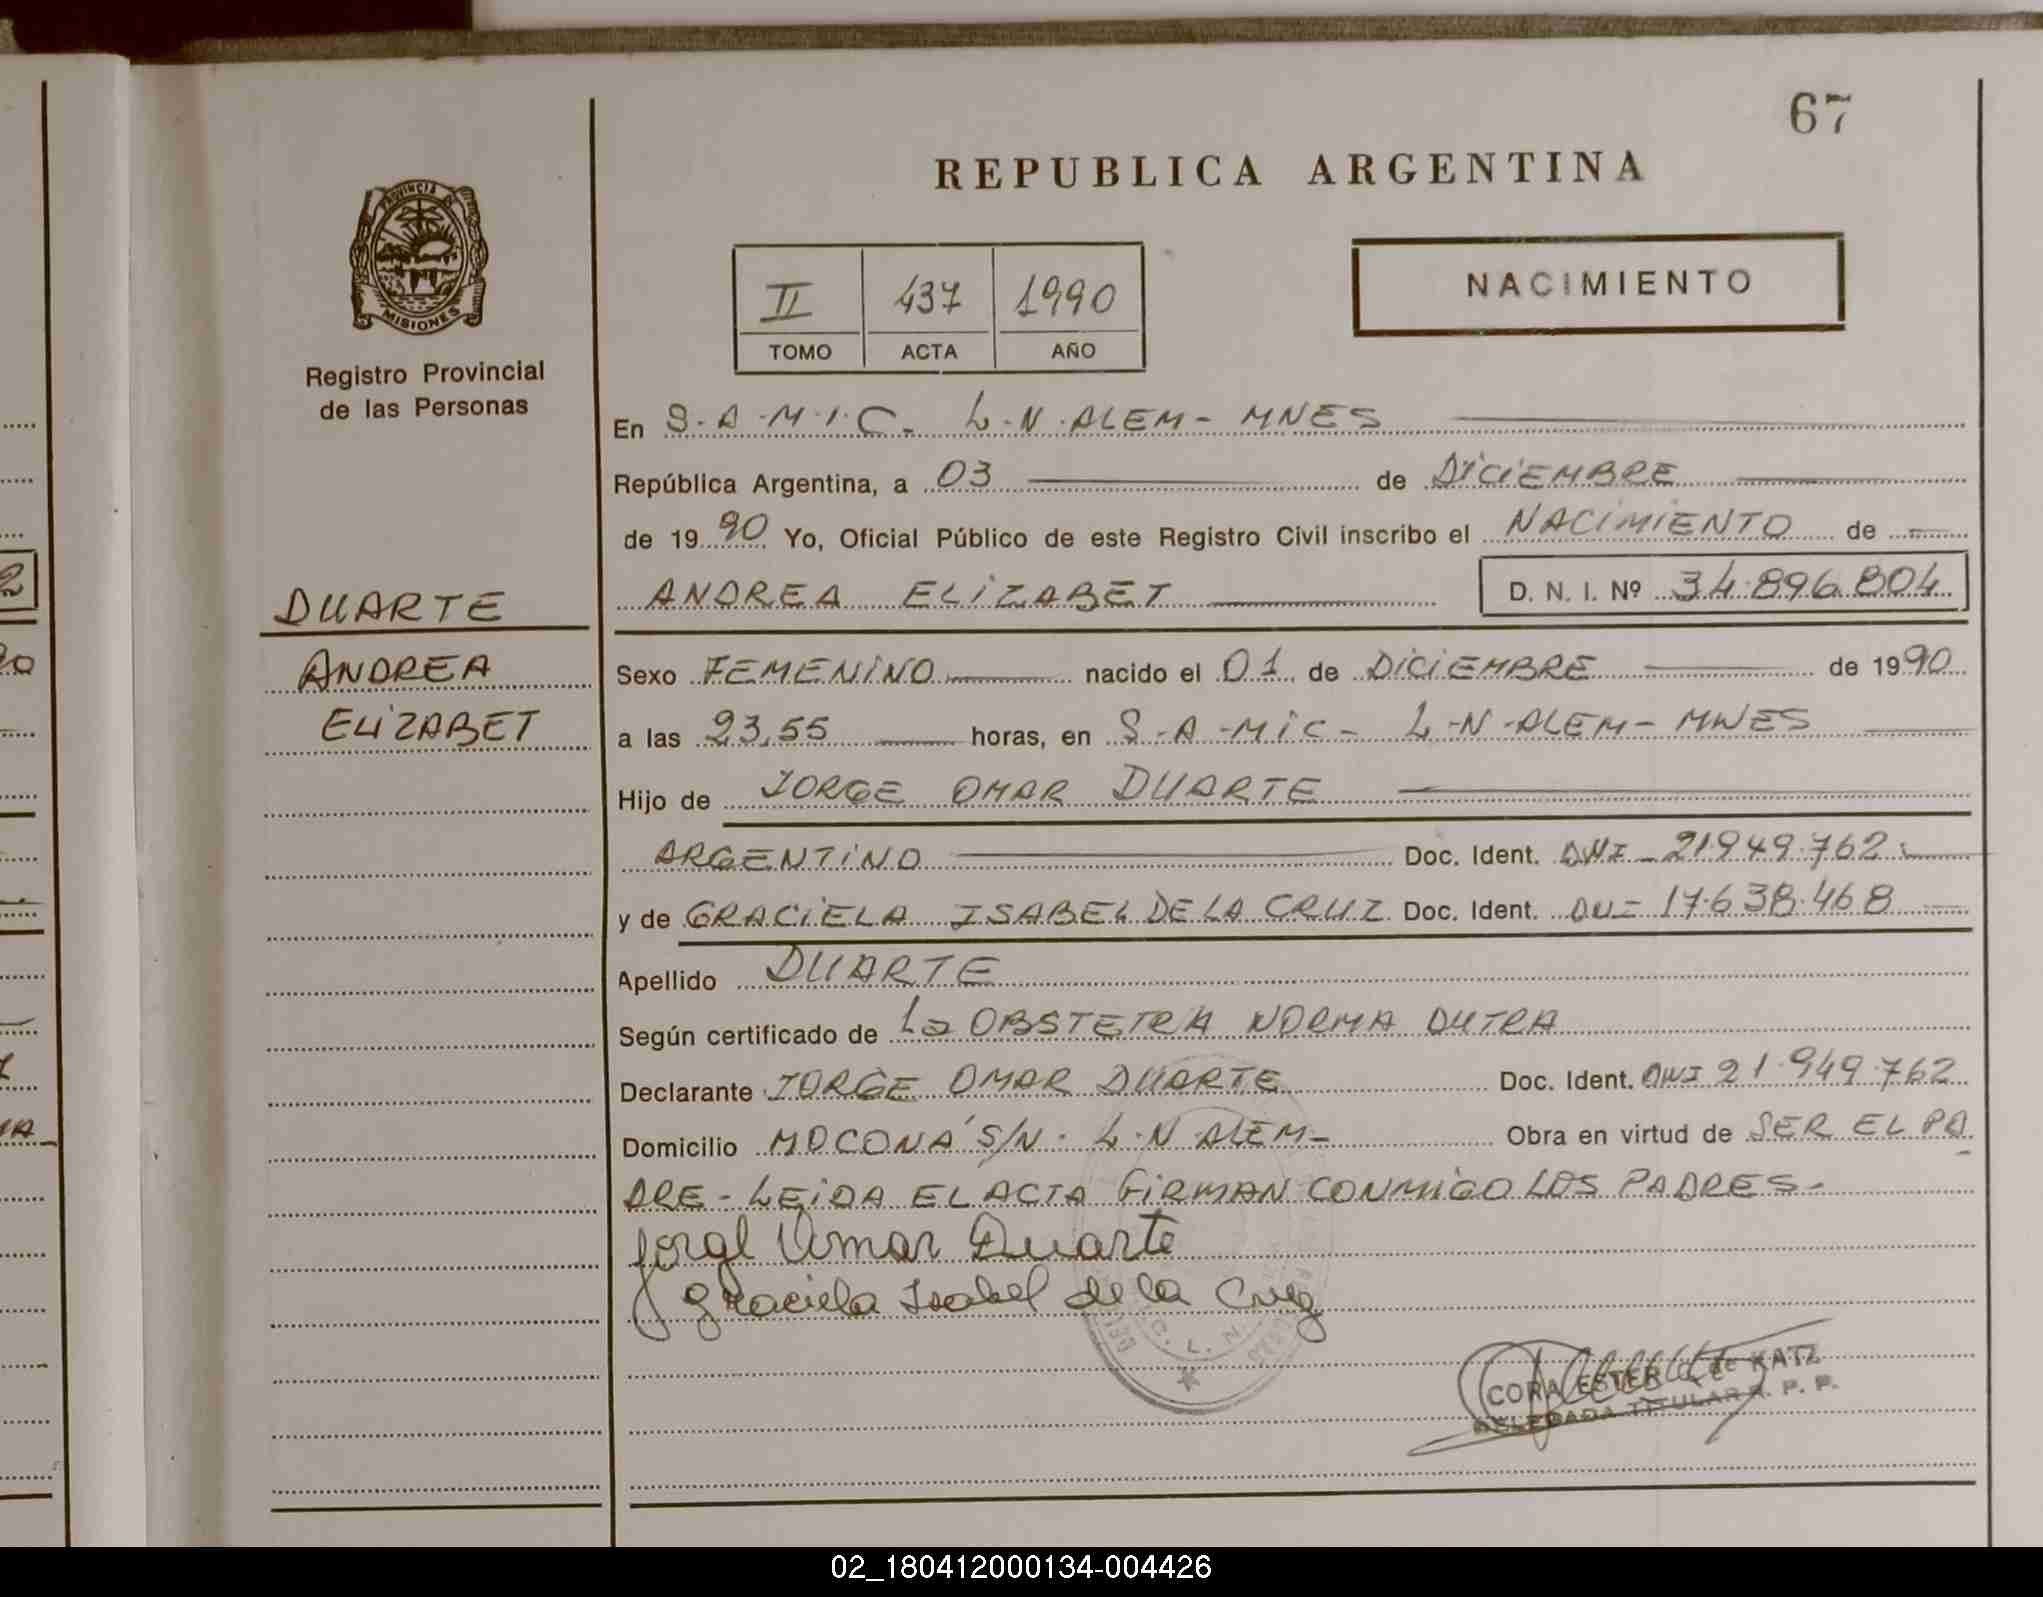 67
REPUBLICA ARGENTINA
PROVINCIA DE
MISIONES
Registro Provincial
de las Personas
II 437 1990
TOMO ACTA AÑO
NACIMIENTO
En S.A.M.I.C. L.N.ALEM- MNES
República Argentina, a 03 de DICIEMBRE
de 1990 Yo, Oficial Público de este Registro Civil inscribo el NACIMIENTO de
ANDREA ELIZABET D. N. I. Nº 34.896.804
DUARTE
ANDREA
ELIZABET
Sexo FEMENINO nacido el 01 de DICIEMBRE de 1990
a las 23,55 horas, en S.A.MIC- L.N.ALEM- MNES
Hijo de JORGE OMAR DUARTE
ARGENTINO Doc. Ident. DNI 21.949.762
y de GRACIELA ISABEL DE LA CRUZ Doc. Ident. DNI 17.638.468
Apellido DUARTE
Según certificado de La OBSTETRA NORMA DUTRA
Declarante JORGE OMAR DUARTE Doc. Ident. DNI 21.949.762
Domicilio MOCONA' S/N. L.N.ALEM- Obra en virtud de SER EL PA
DRE - LEIDA EL ACTA FIRMAN CONMIGO LOS PADRES-
Jorge Omar Duarte
Graciela Isabel de la Cruz
CORA ESTER de KATZ
DELEGADA TITULAR R. P. P.
02_180412000134-004426